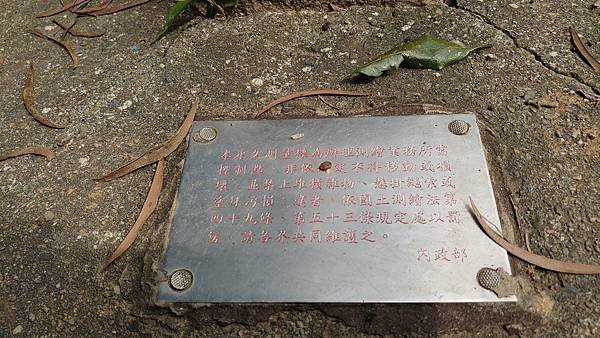 本永久測量標為辦理測繪業務所需
控制點，非依定不得移動或損
壞，並禁止堆積雜物、懸掛繩索或
塗抹污損，違者，依國土測繪法第
四十九條、第五十三條規定處以罰
鍰，請各界共同維護之。
內政部